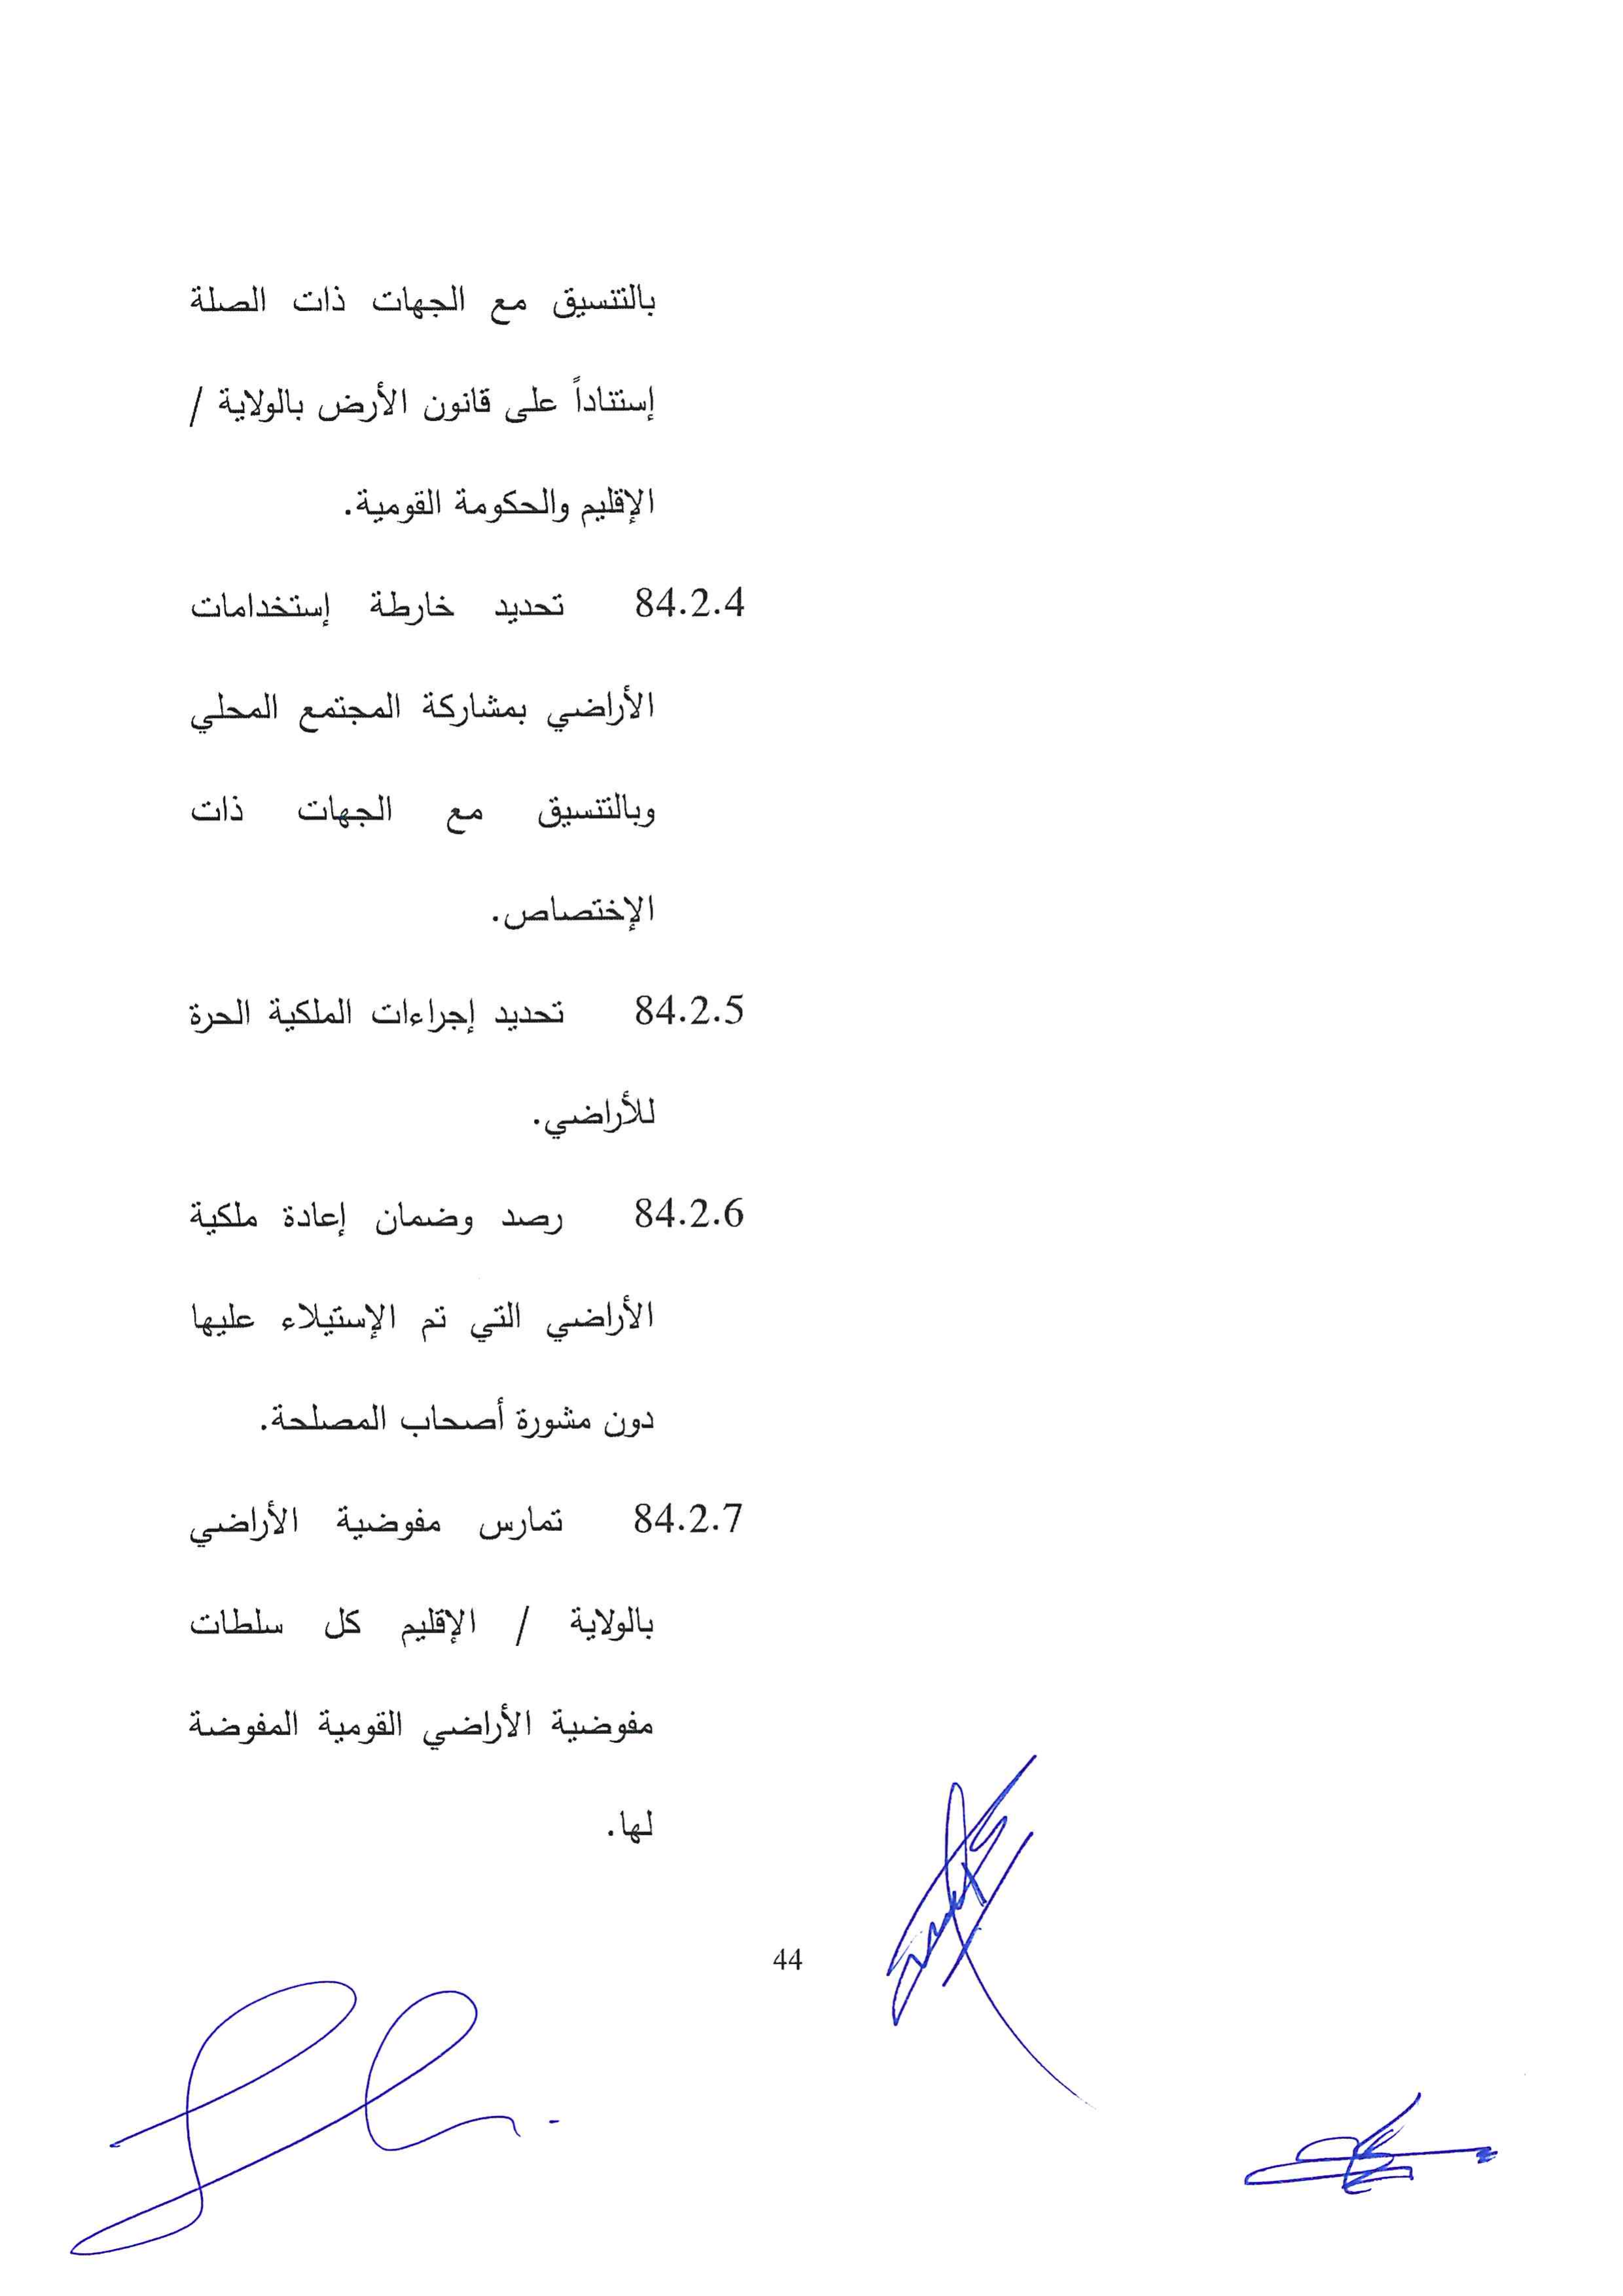 بالتنسيق مع الجهات ذات الصلة
إستناداً على قانون الأرض بالولاية /
الإقليم والحكومة القومية.
84.2.4 تحديد خارطة إستخدامات
الأراضي بمشاركة المجتمع المحلي
وبالتنسيق مع الجهات ذات
الإختصاص.
84.2.5 تحديد إجراءات الملكية الحرة
للأراضي.
84.2.6 رصد وضمان إعادة ملكية
الأراضي التي تم الإستيلاء عليها
دون مشورة أصحاب المصلحة.
84.2.7 تمارس مفوضية الأراضي
بالولاية / الإقليم كل سلطات
مفوضية الأراضي القومية المفوضة
لها.
44